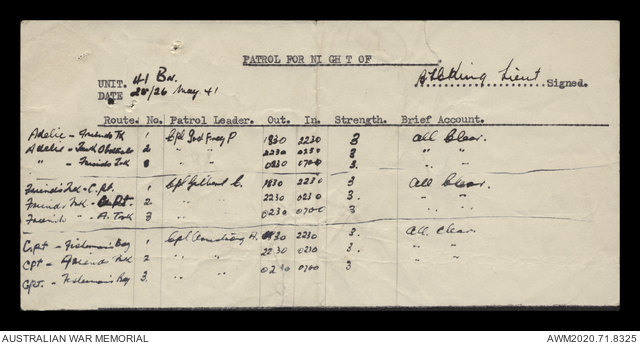 PATROL FOR NIGHT OF
UNIT. 41 Bn.
DATE 25/26 May 41
King Lieut Signed.
Route. No. Patrol Leader. Out. In. Strength. Brief Account.
Adelie - Friends Tk 1 Cpl Godfrey P. 1830 2230 3 All Clear.
Adelie - Tank 2 " " 2230 0230 3 " "
" - Friends Trk 3 " " 0230 0700 3 " "
Friends Trk - C. Pt. 1 Cpl Gilbard C. 1830 2230 3 All Clear.
Friends Trk - C. Pt. 2 " " 2230 0230 3. " "
Friends " - A. Trk 3 " " 0230 0700 3 " "
C. pt - Fishermans Bay 1 Cpl Armstrong A. 1830 2230 3. All Clear
Cpt - Friends Trk 2 " " 2230 0230 3. " "
Cpt. - Fishermans Bay 3. " " 0230 0700 3 " "
AUSTRALIAN WAR MEMORIAL
AWM2020.71.8325